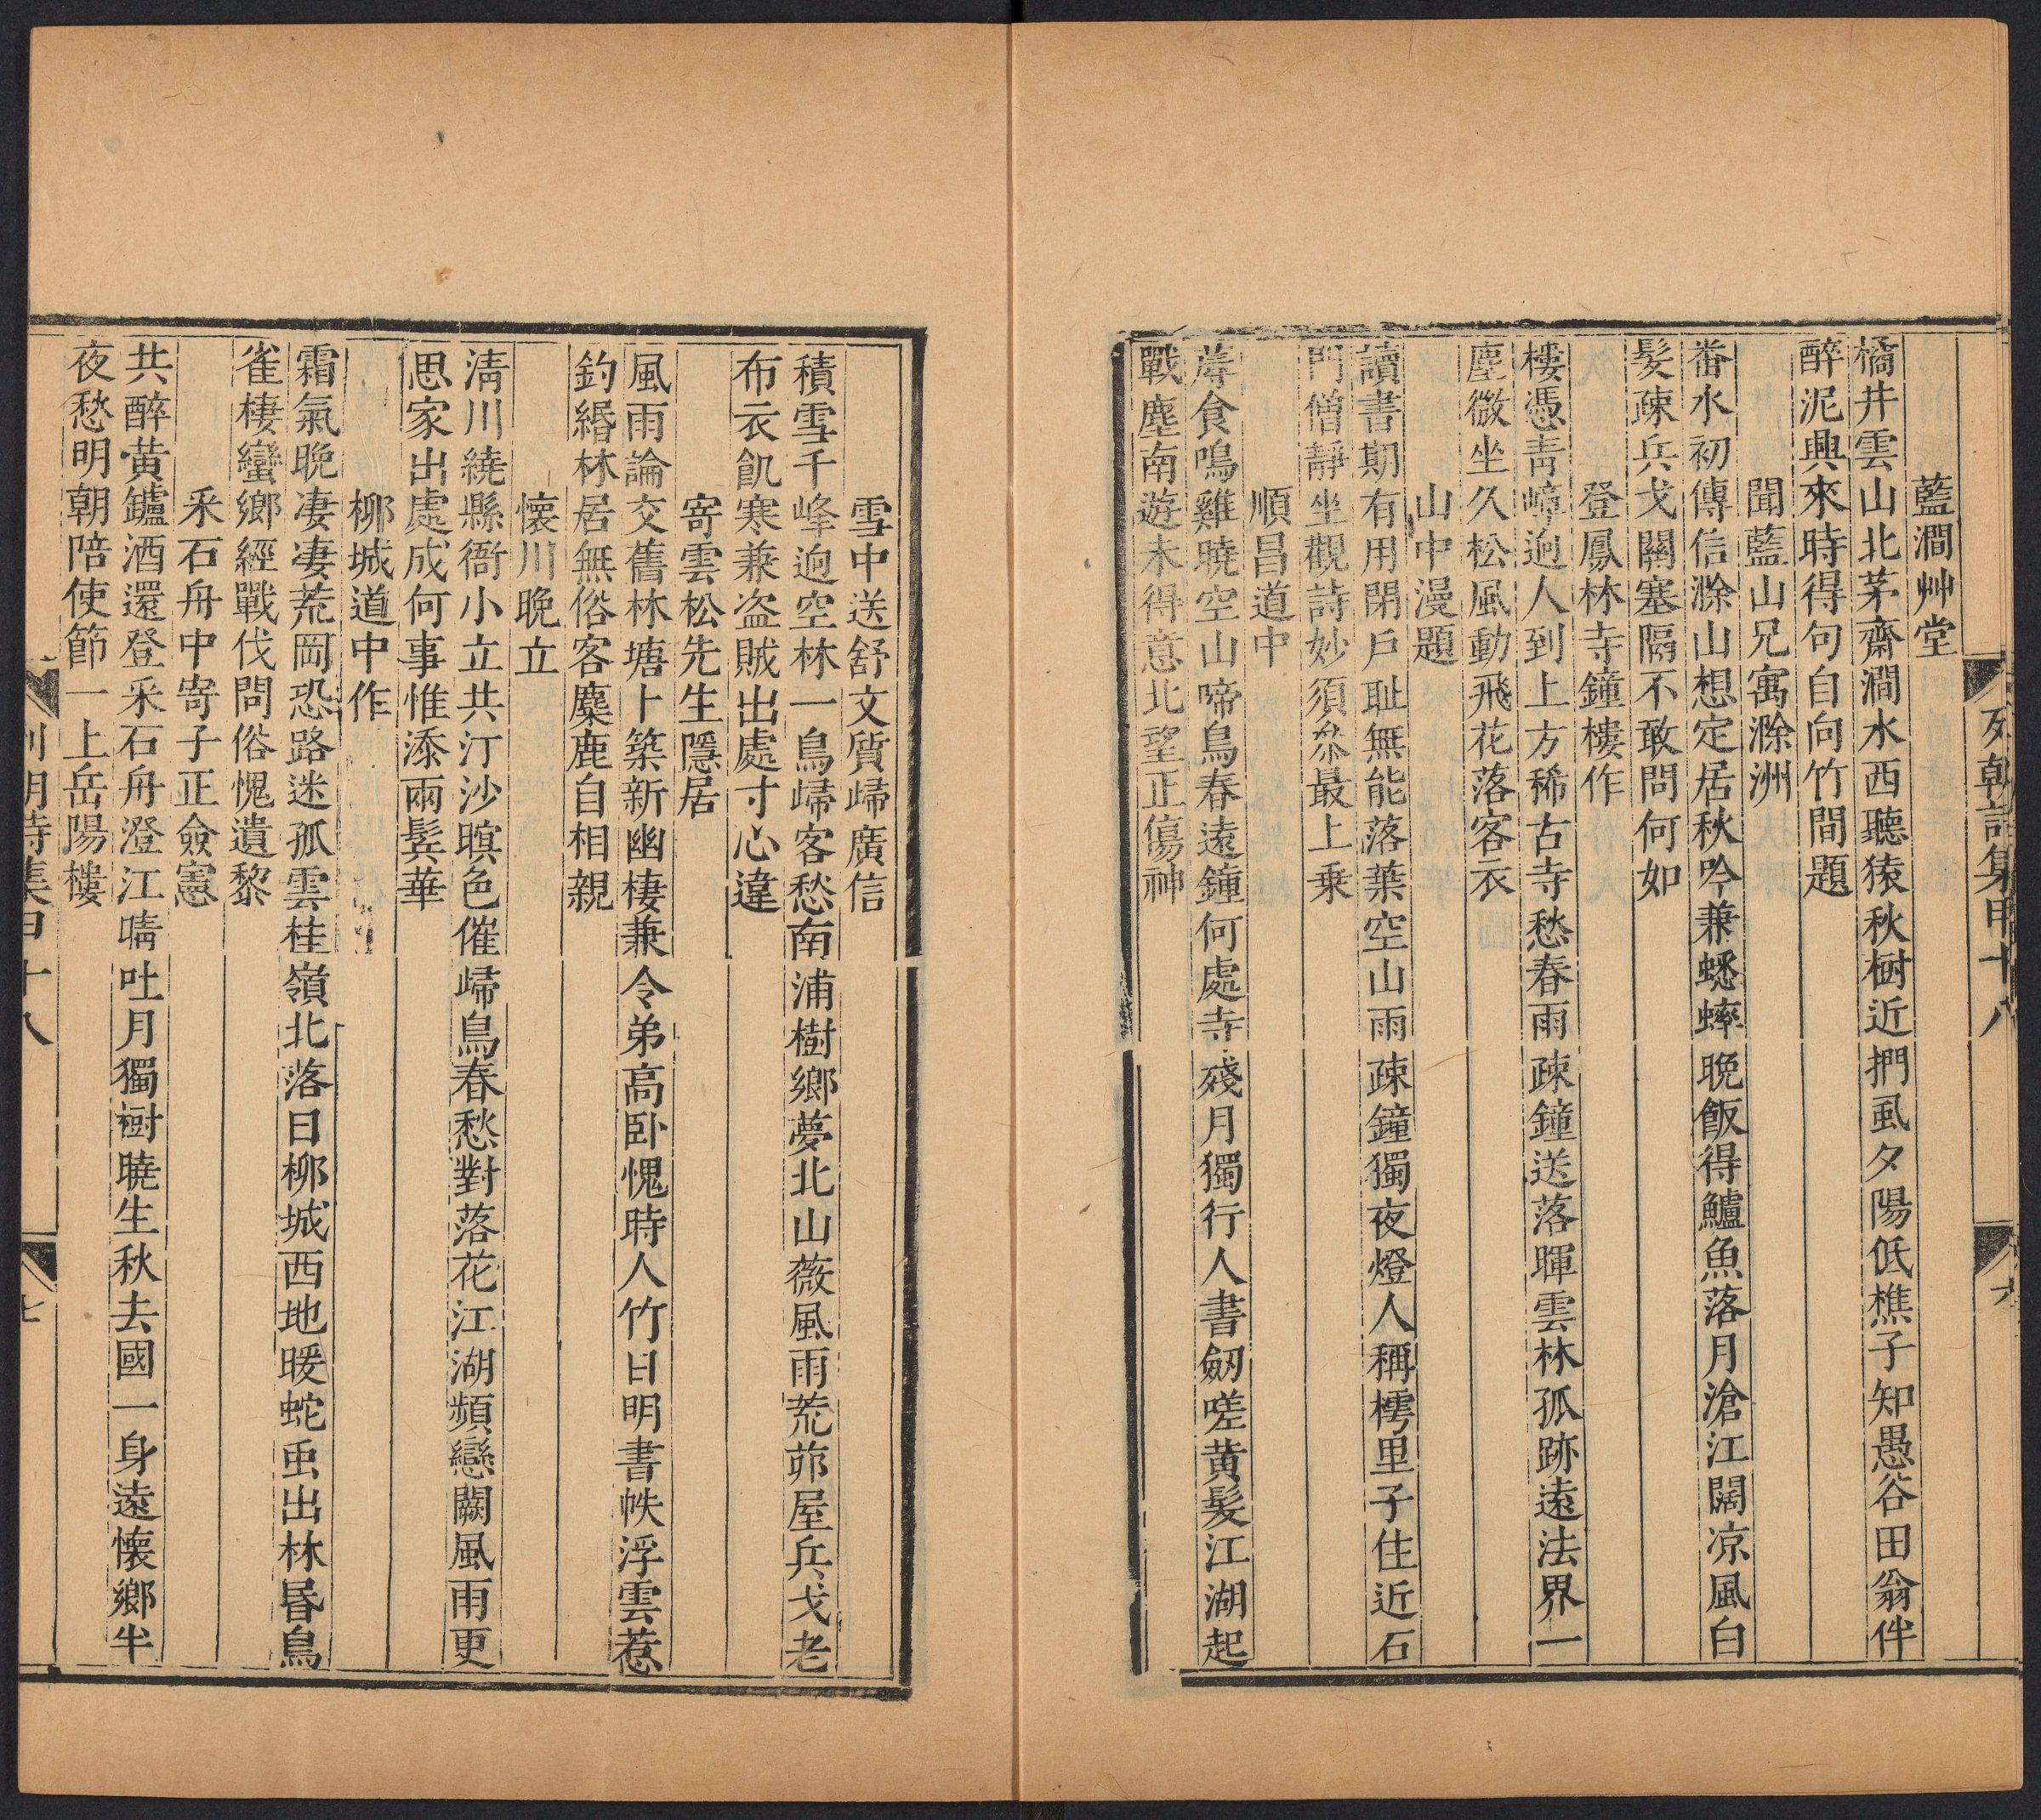 列朝詩集甲十八
六
藍澗艸堂
橘井雲山北茅齋澗水西聽猿秋樹近捫虱夕陽低樵子知愚谷田翁伴
醉泥興來時得句自向竹間題
聞藍山兄寓滁洲
番水初傳信滁山想定居秋吟兼蟋蟀晚飯得鱸魚落月滄江闊凉風白
髮疎兵戈關塞隔不敢問何如
登鳳林寺鐘樓作
樓憑靑嶂逈人到上方稀古寺愁春雨疎鐘送落暉雲林孤跡遠法界一
塵微坐久松風動飛花落客衣
山中漫題
讀書期有用閉戶耻無能落葉空山雨疎鐘獨夜燈人稱樗里子住近石
門僧靜坐觀詩妙須叅最上乗
順昌道中
蓐食鳴雞曉空山啼鳥春遠鐘何處寺殘月獨行人書劒嗟黄髮江湖起
戰塵南遊未得意北望正傷神
雪中送舒文質歸廣信
積雪千峰逈空林一鳥歸客愁南浦樹鄉夢北山薇風雨荒茆屋兵戈老
布衣飢寒兼盗賊出處寸心違
寄雲松先生隱居
風雨論交舊林塘卜築新幽棲兼令弟高卧愧時人竹日明書帙浮雲惹
釣緡林居無俗客麋鹿自相親
懐川晚立
淸川繞縣衙小立共汀沙暝色催歸鳥春愁對落花江湖頻戀闕風雨更
思家出處成何事惟添兩鬓華
柳城道中作
霜氣晚凄凄荒岡恐路迷孤雲桂嶺北落日柳城西地暖蛇虫出林昬鳥
雀棲蠻鄉經戰伐問俗愧遺黎
采石舟中寄子正僉憲
共醉黄鑪酒還登采石舟澄江晴吐月獨樹曉生秋去國一身遠懐鄉半
夜愁明朝陪使節一上岳陽樓
列朝詩集甲十八
七